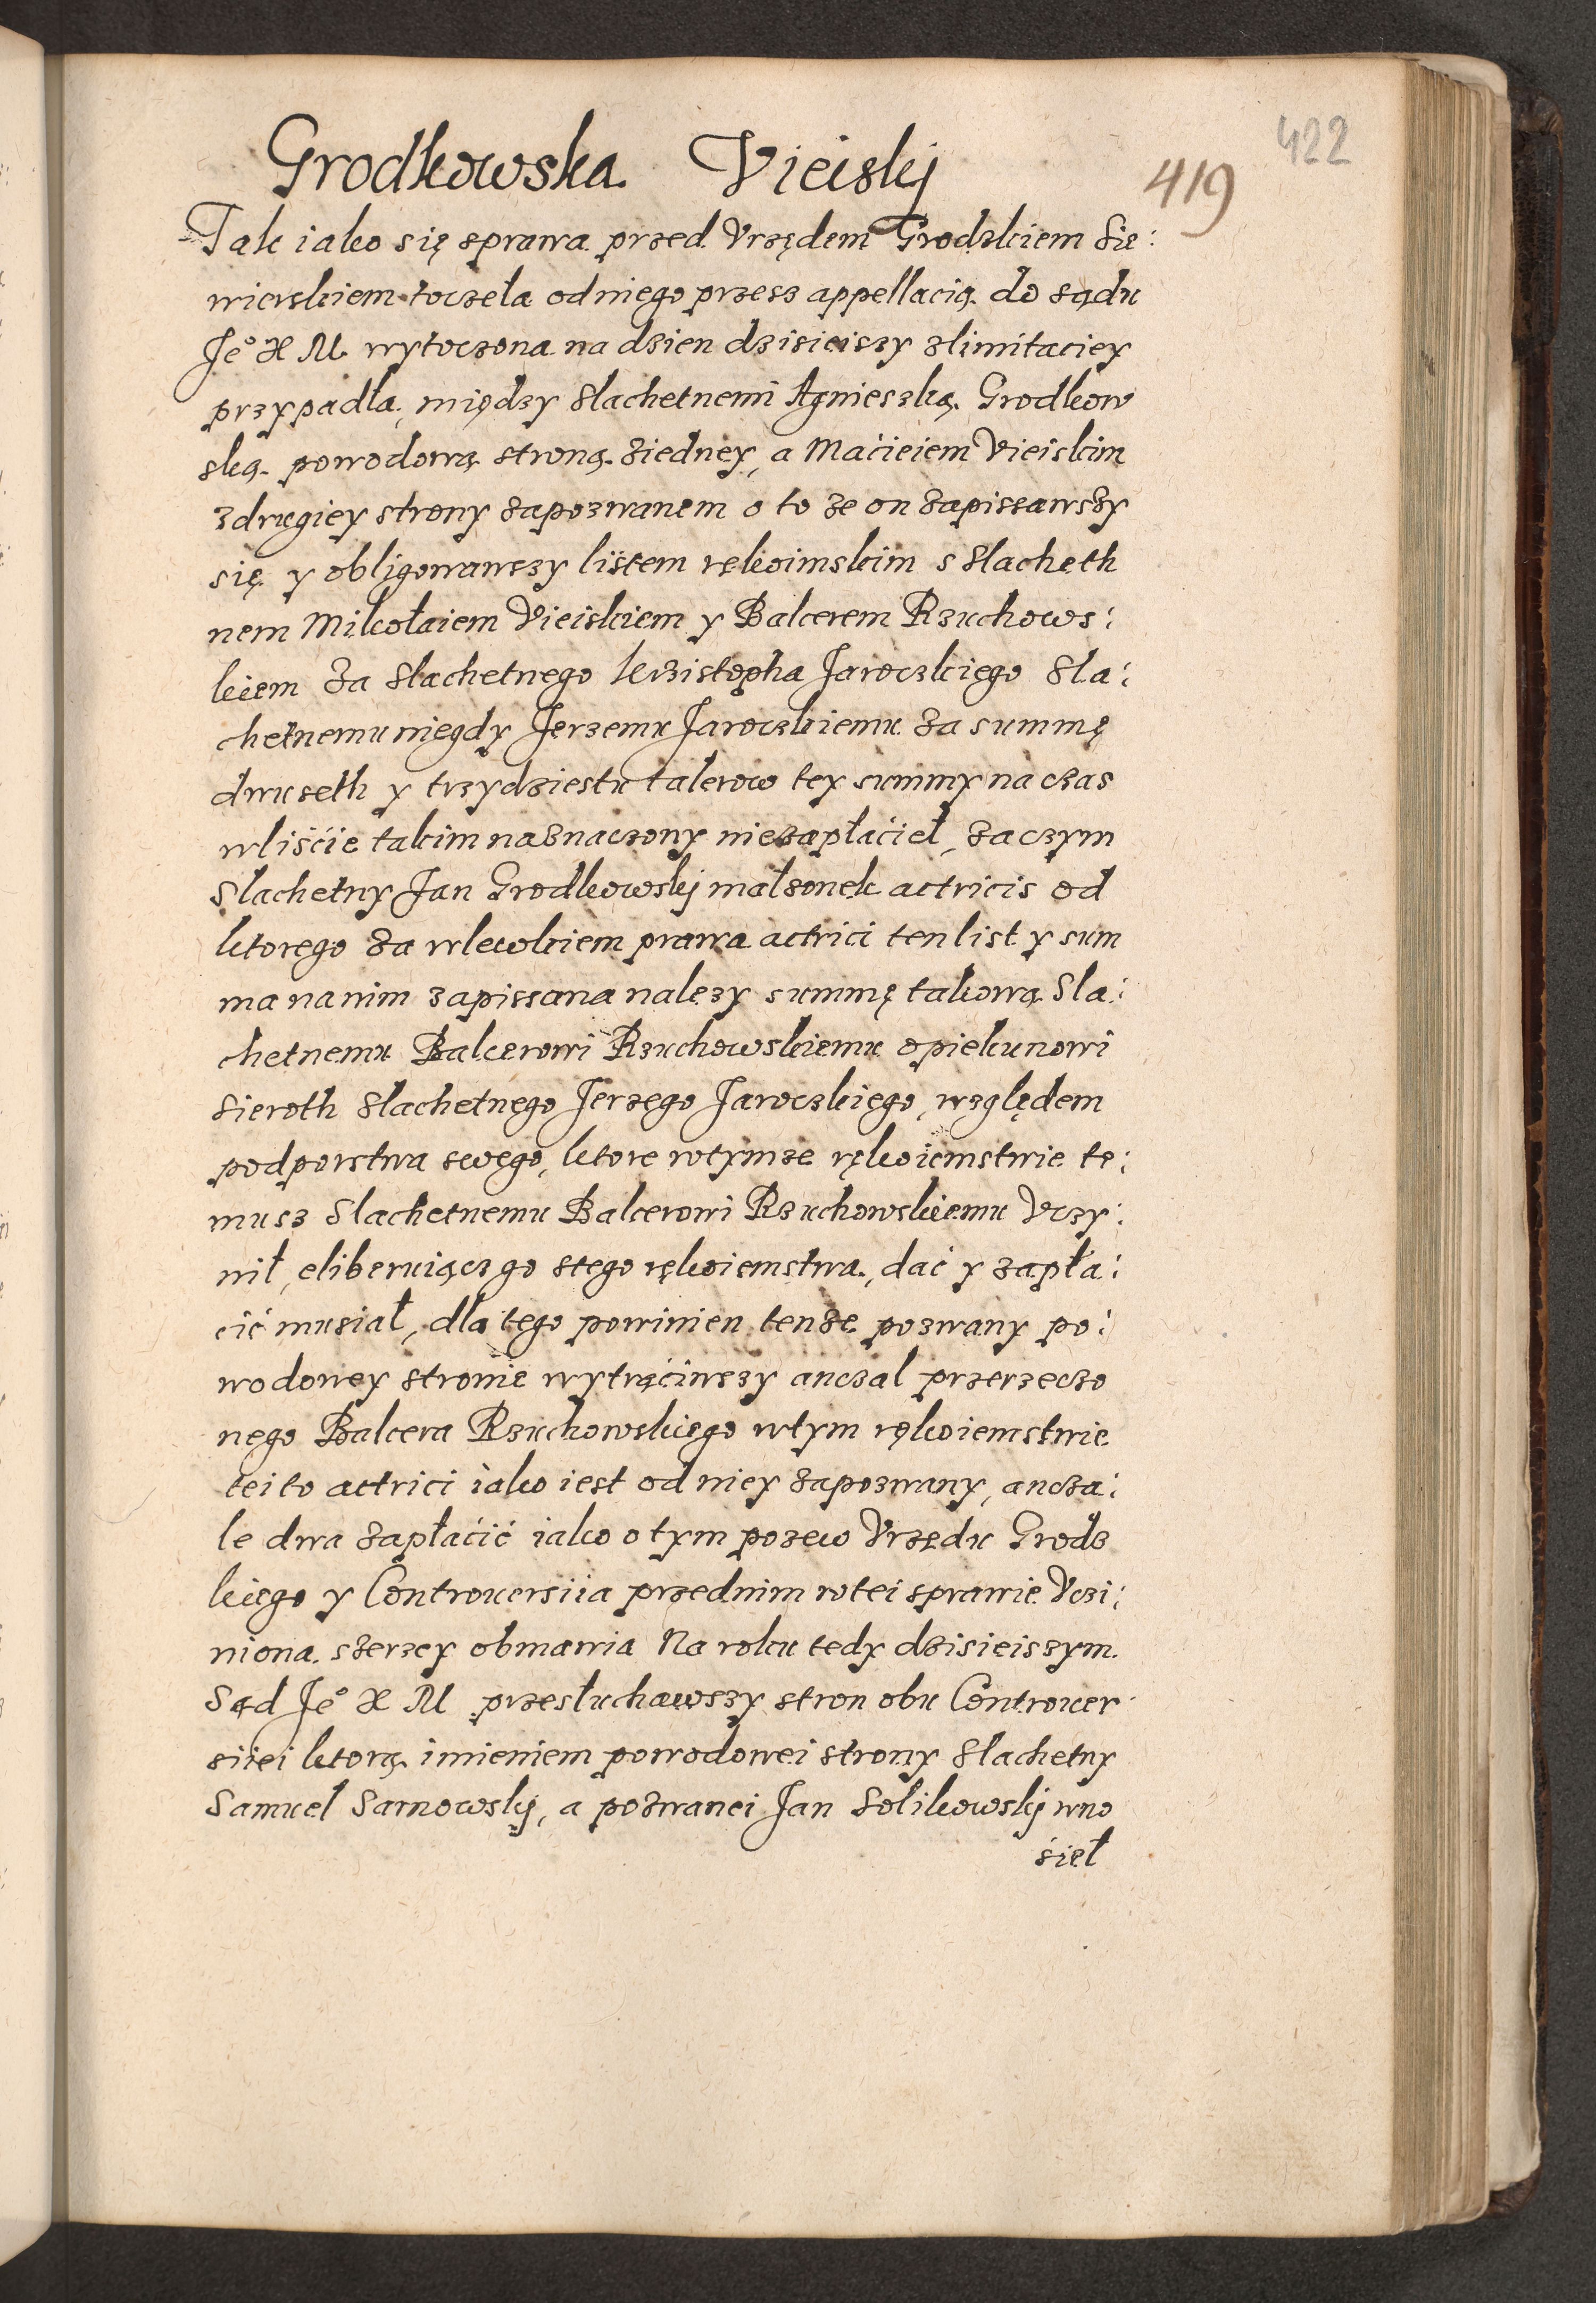 422
419
Grodkowska Vieiskj
Tak iako się sprawa przed Vrzędem Grodzkiem Sie:
wierskiem toczeła od niego przesz appellacią do sądu
Je° X M wytoczona na dzien dzisieiszy z limitaciey
przypadła, między slachetnemi Agnieszką Grodkow
ską powodową stroną ziedney, a Maćieiem Vieiskim
z drugiey strony zapozwanem o to ze on zapissawszy
się y obligowawszy listem rękoimskim s slacheth
nem Mikołaiem Vieiskiem y Balcerem Rzuchows:
kiem za slachetnego Krzistopha Jaroczkiego sla:
chetnemu niegdy Jerzemu Jaroczkiemu za summę
dwuseth y trzydziestu talerow tey summy na czas
w liśćie takim naznaczony niezapłaćieł, zaczym
slachetny Jan Grodkowskj małzonek actricis od
ktorego za wlewkiem prawa actrici ten list y sum
ma na nim zapissana nalezy summę takową sla:
chetnemu Balcerowi Rzuchowskiemu opiekunowi
sieroth slachetnego Jerzego Jaroczkiego, względem
podporstwa swego, ktore w tymze rękoiemstwie te:
musz slachetnemu Balcerowi Rzuchowskiemu Vczy:
nił, eliberuiącz go stego rękoiemstwa, dać y zapła:
cić musiał, dla tego powinien tenze pozwany po:
wodowey stronie wytrąćiwszy anczal przerzeczo
nego Balcera Rzuchowskiego w tym rękoiemstwie
tei to actrici iako iest od niey zapozwany, ancza:
le dwa zapłaćić iako o tym pozew Vrzędu Grodz
kiego y Controuersiia przed nim w tei sprawie Vczi:
niona szerzey obmawia Na roku tedy dzisieiszym
Sąd Je° X M przesłuchawszy stron obu Controuer
siiei ktorą imieniem powodowei strony slachetny
Samuel Sarnowskj, a pozwanei Jan Solikowskj wno
śieł